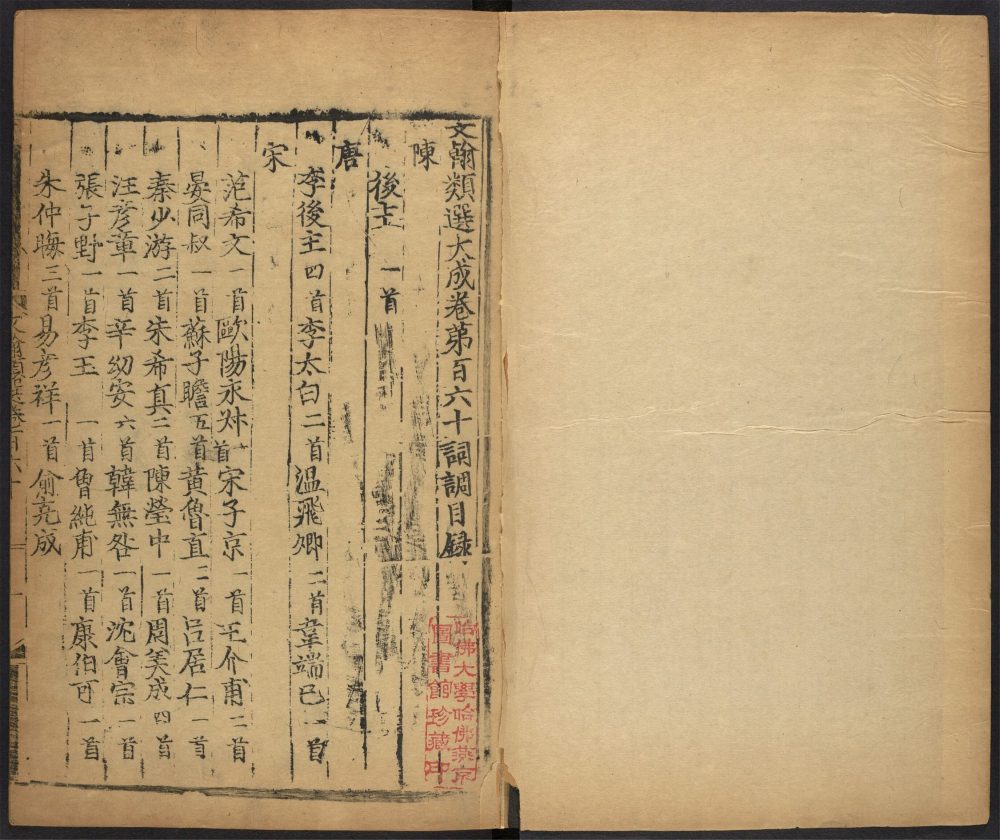 文翰類選大成卷第百六十詞調目錄
陳
後主 一首
唐
李後主 四首 李太白 二首 溫飛卿 二首 韋端巳 一首
宋
范希文 一首 歐陽永叔 一首 宋子京 一首 王介甫 二首
晏同叔 一首 蘇子瞻 五首 黃魯直 二首 呂居仁 一首
秦少游 二首 朱希真 二首 陳瑩中 一首 周美成 四首
汪彥章 一首 辛幼安 六首 韓無咎 一首 沈會宗 一首
張子野 一首 李玉 一首 魯純甫 一首 康伯可 一首
朱仲晦 三首 易彥祥 一首 俞克成
哈佛大學哈佛燕京
圖書館珍藏印